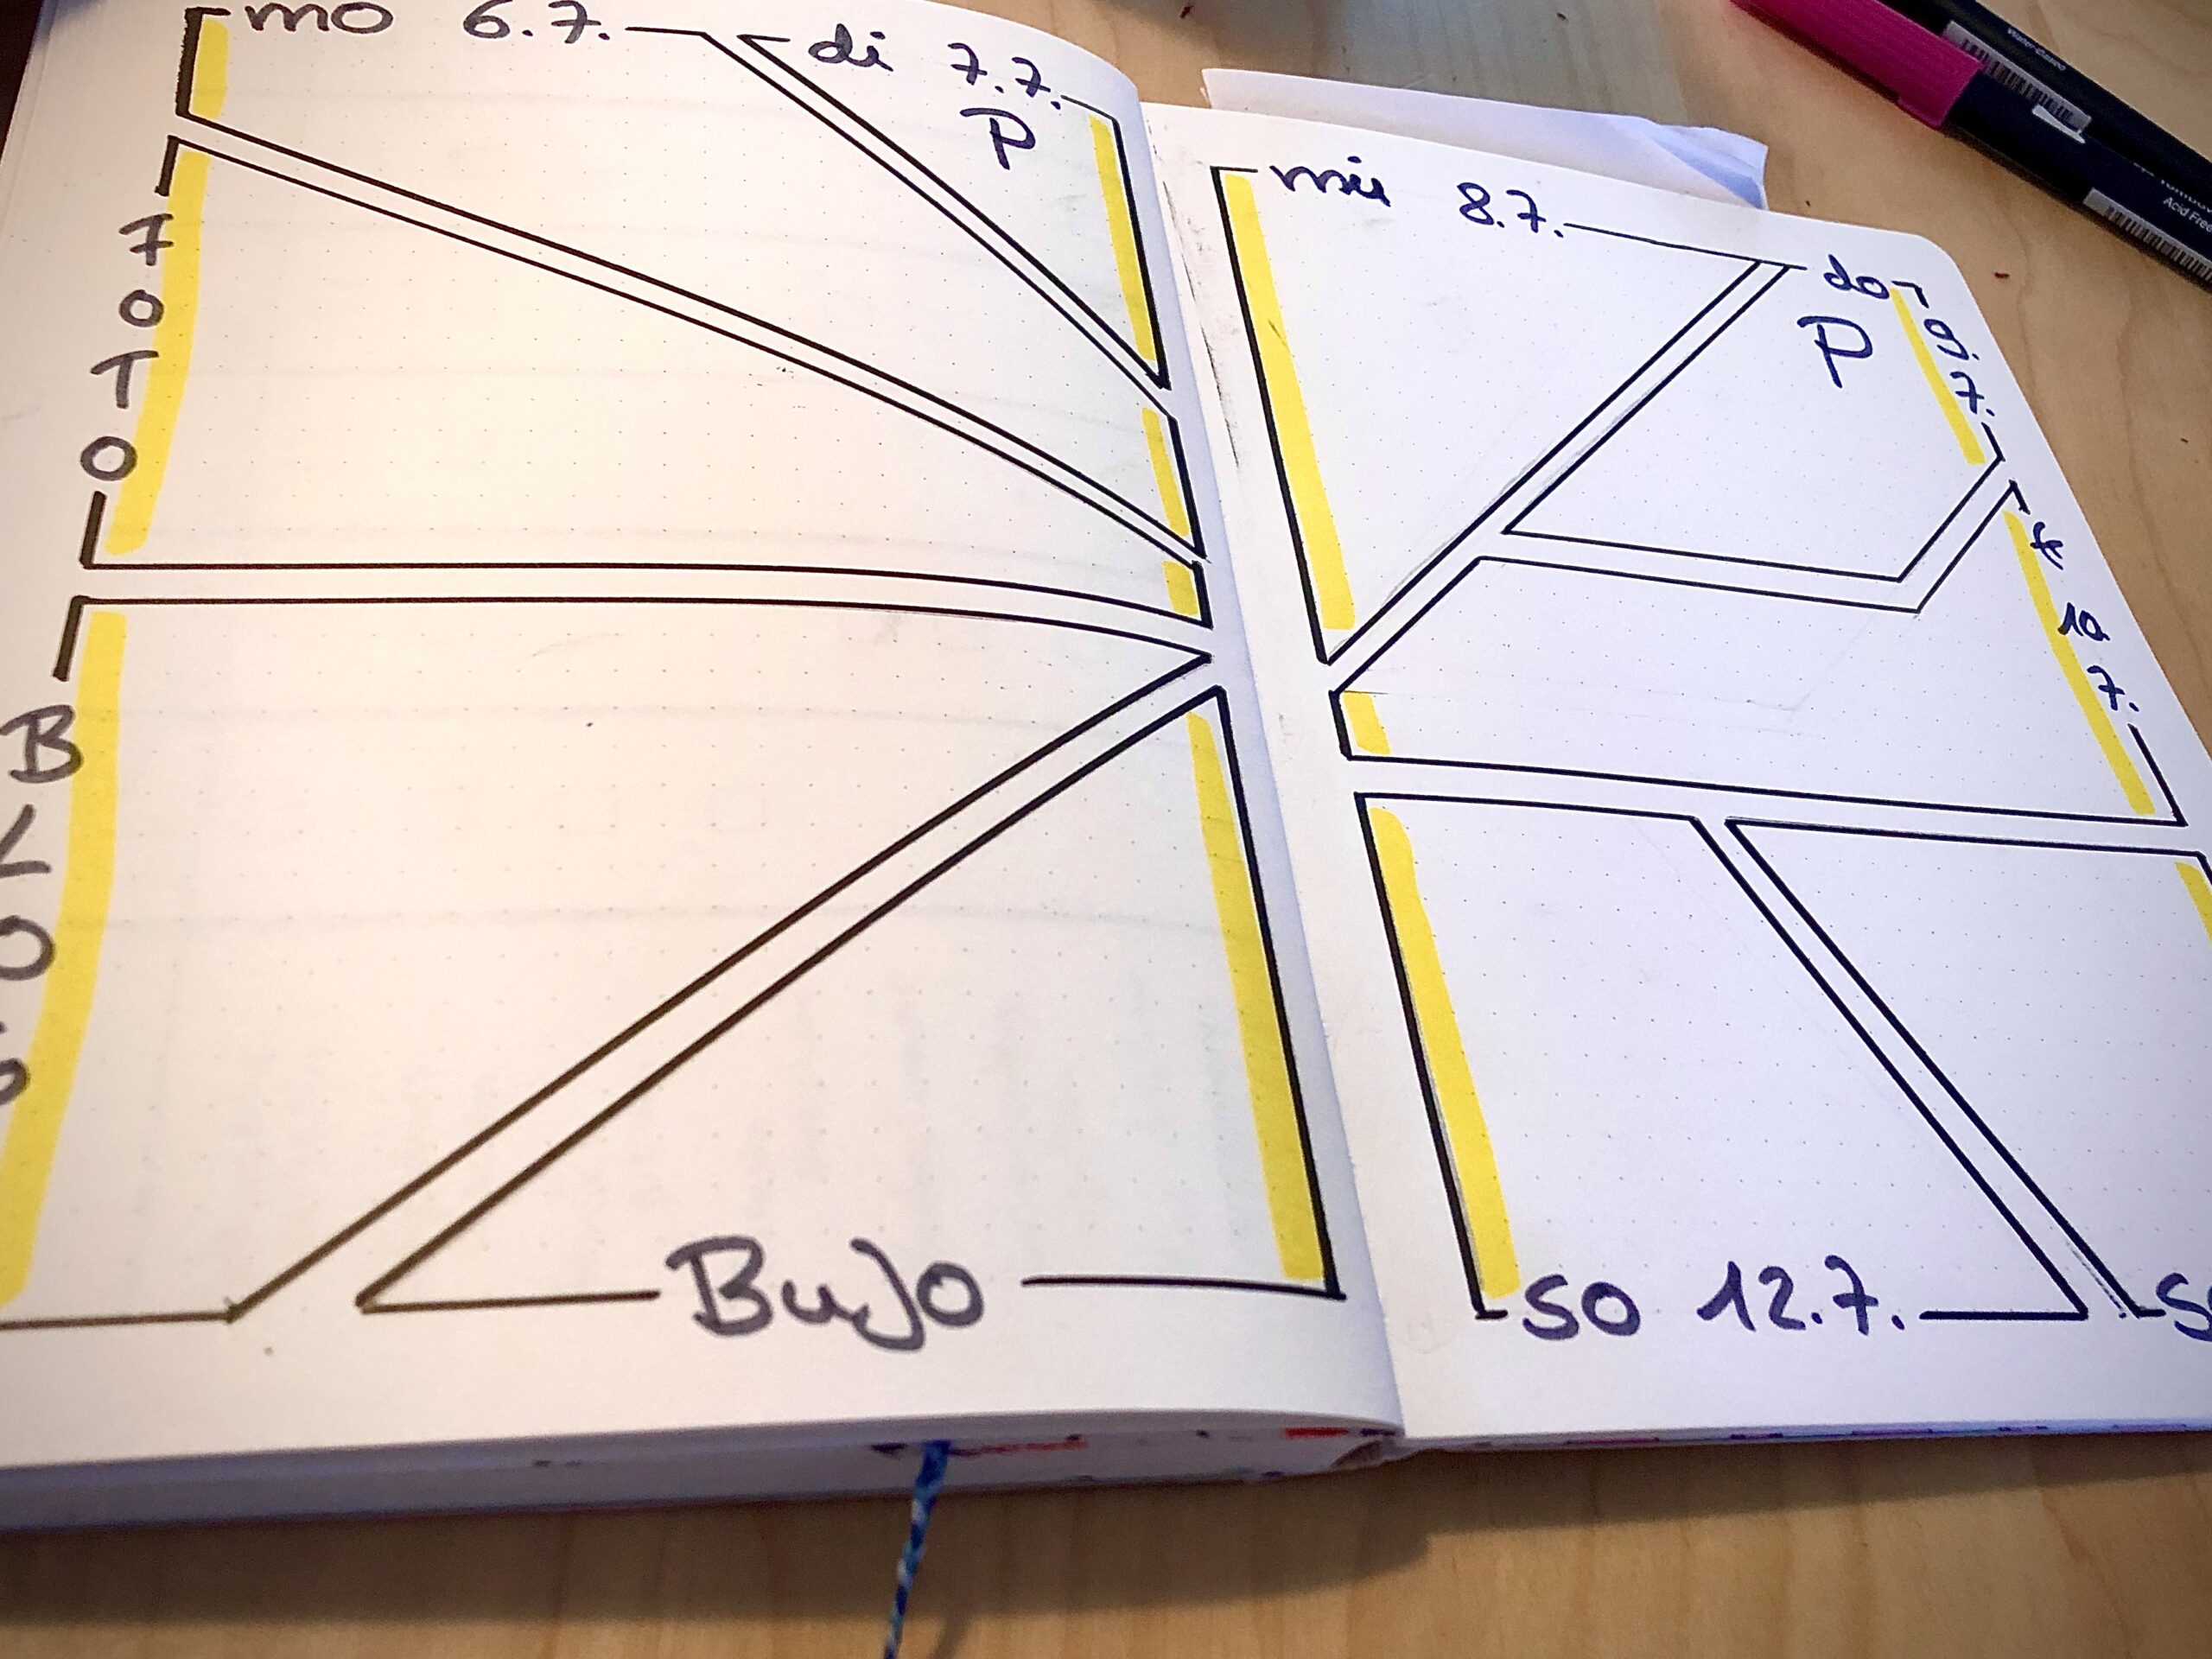 mo 6.7.
di 7.7.
P
7
O
T
O
B
L
O
BuJo
mi 8.7.
do
9.
7.
P
fr
10
7.
so 12.7.
Acid Free